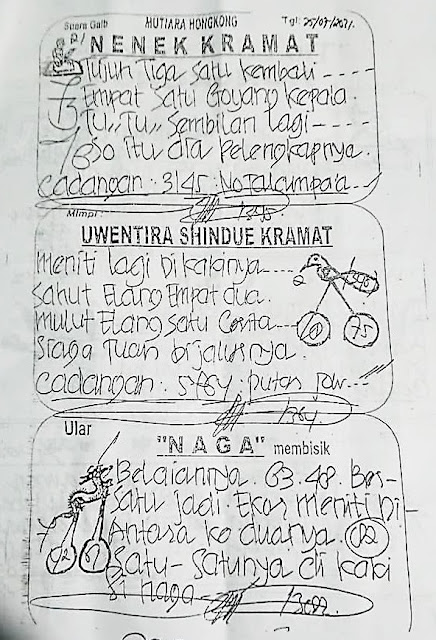 Suara Gaib MUTIARA HONGKONG Tgl: 25/07/2021.
NENEK KRAMAT
Tujuh Tiga satu kembali ----
Empat satu Goyang kepala.
Tu,, Tu,, Sembilan lagi ----
So itu dia pelengkapnya.
Cadangan: 3145:
1345.
Mimpi:
UWENTIRA SHINDUE KRAMAT
Meniti lagi di kakinya ----
Sahut Elang Empat dua.
mulut Elang satu Cerita ---
75
Siaga Tuan di jalurnya.
Cadangan: 5764: putar
1764.
Ular
"NAGA" membisik
Belaiannya. 63.48. Ber-
Satu jadi. Ekor meniti Di-
Antara ke duanya.
Satu-satunya di kaki
si naga